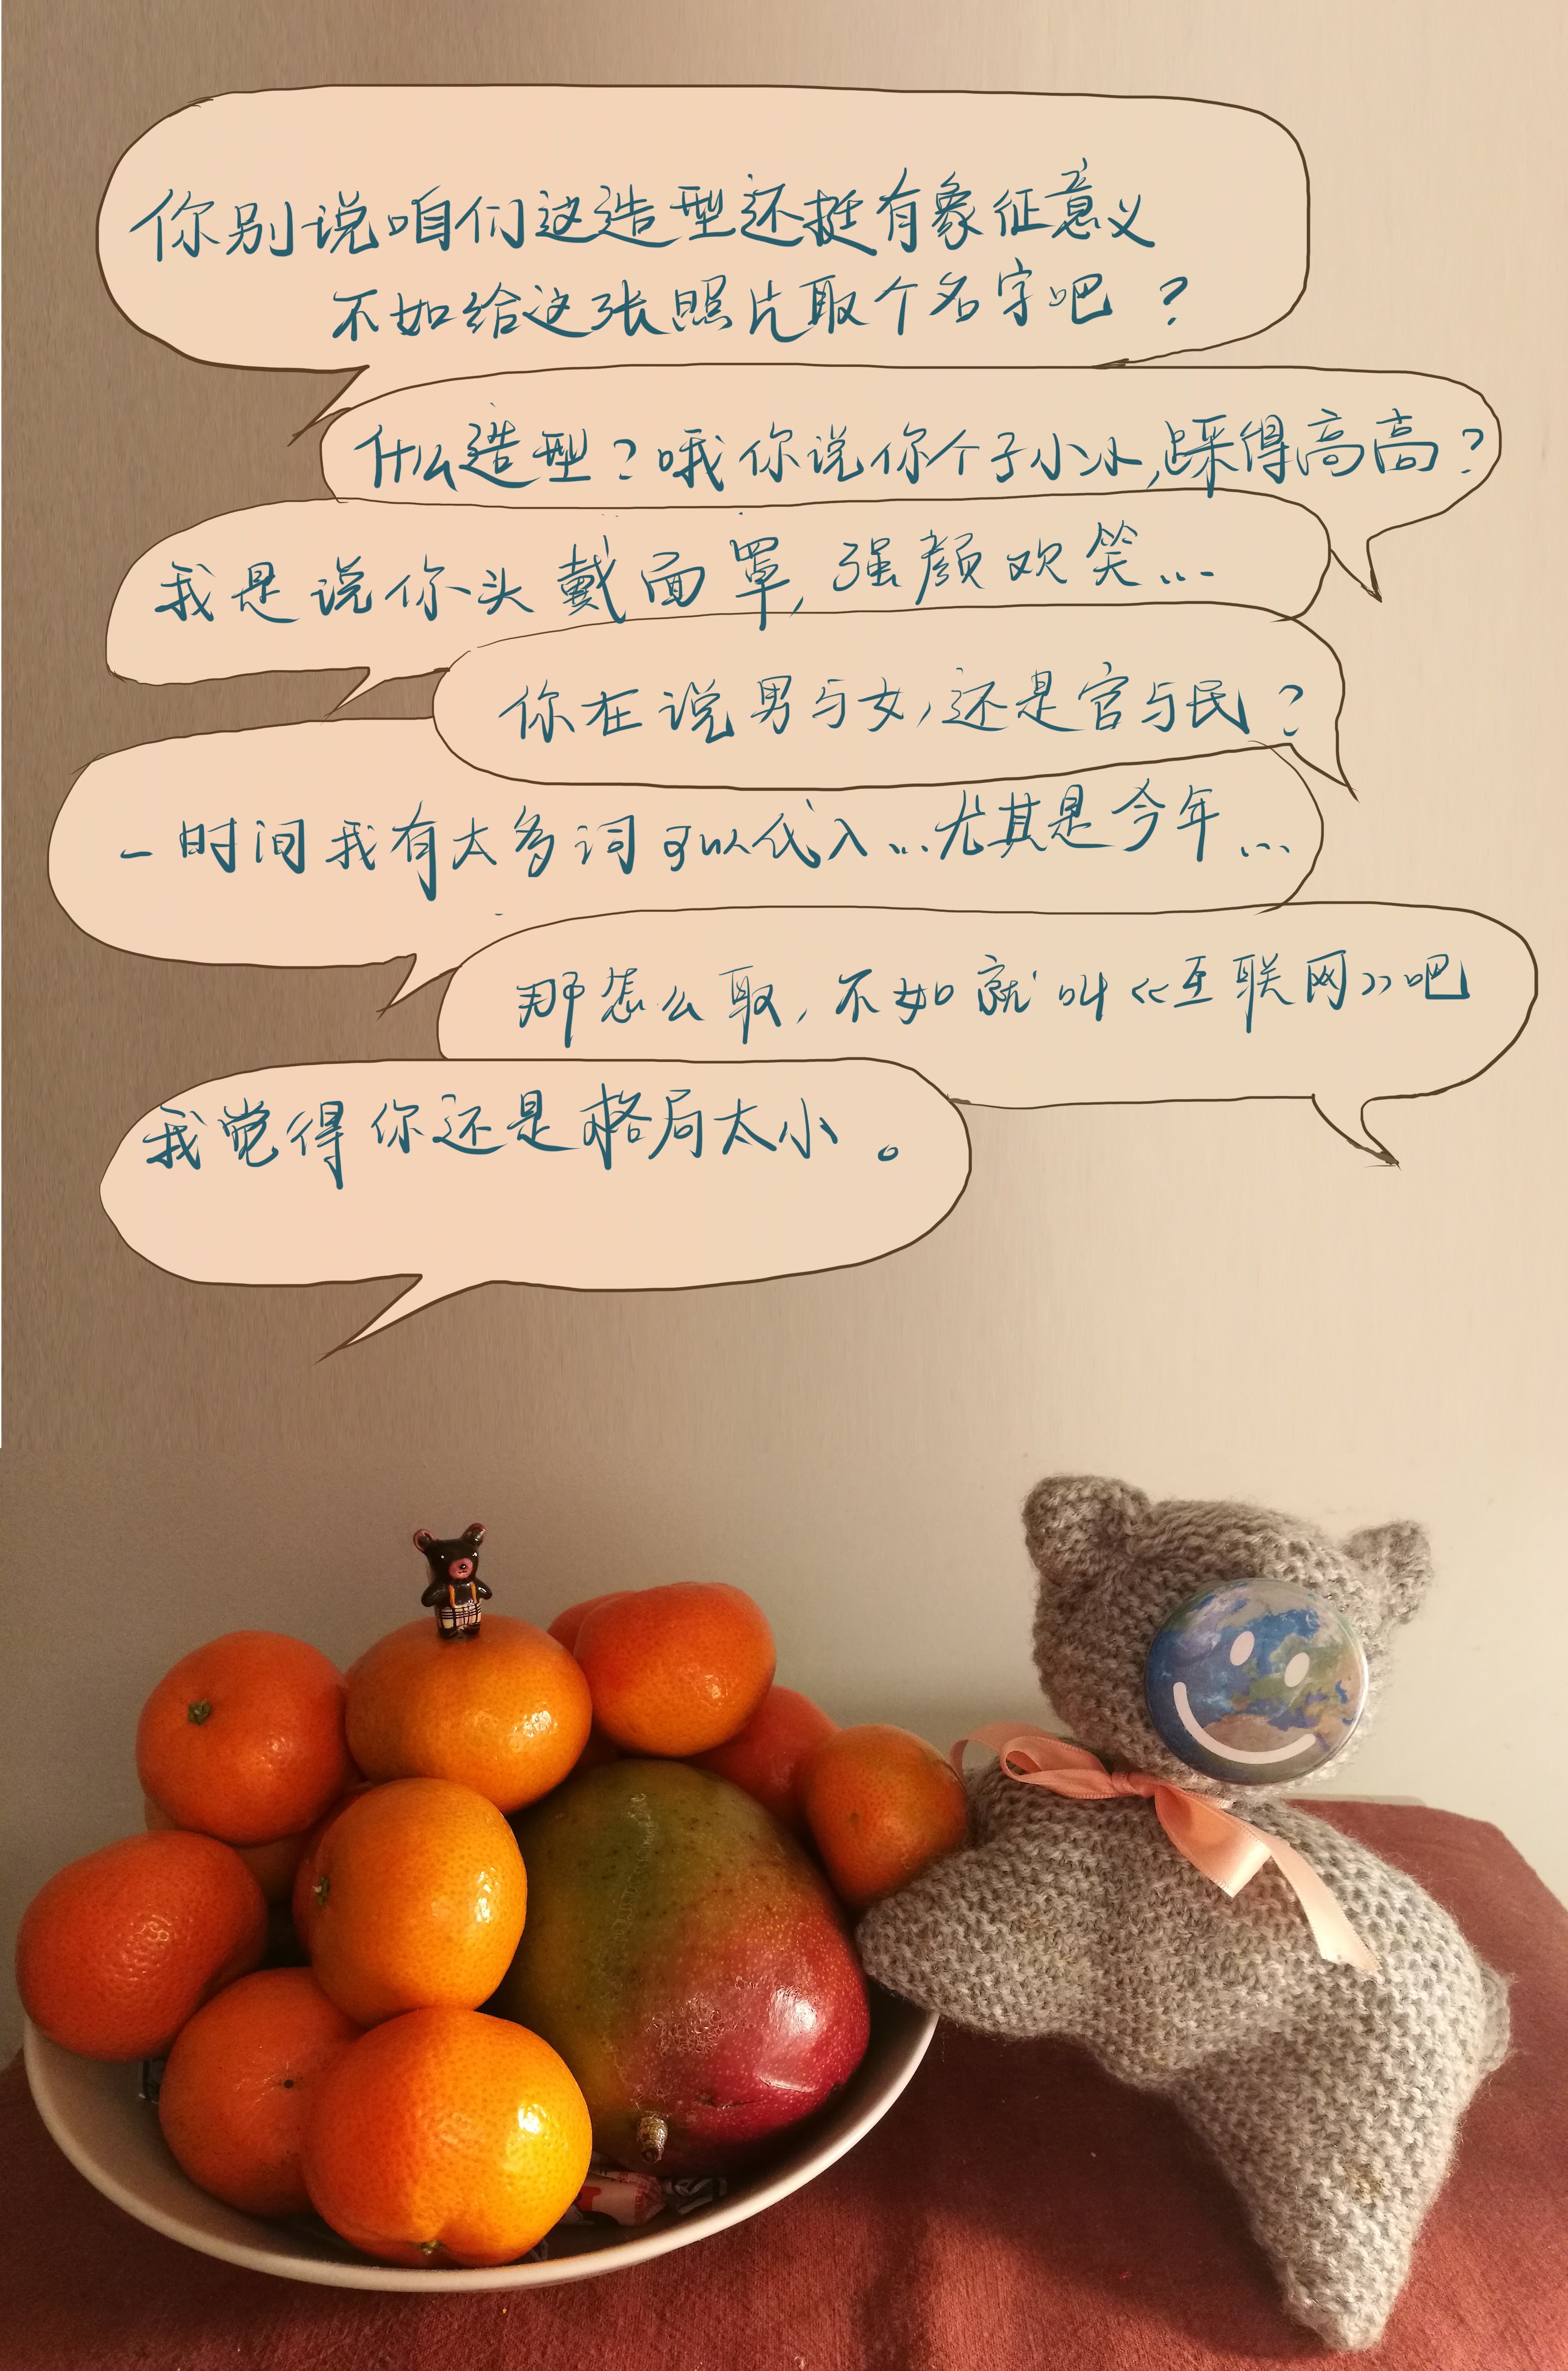 你别说咱们这造型还挺有象征意义
不如给这张照片取个名字吧？
什么造型？哦你说你个子小小,踩得高高？
我是说你头戴面罩,强颜欢笑...
你在说男与女,还是官与民？
一时间我有太多词可以代入...尤其是今年...
那怎么取,不如就叫《互联网》吧
我觉得你还是格局太小。